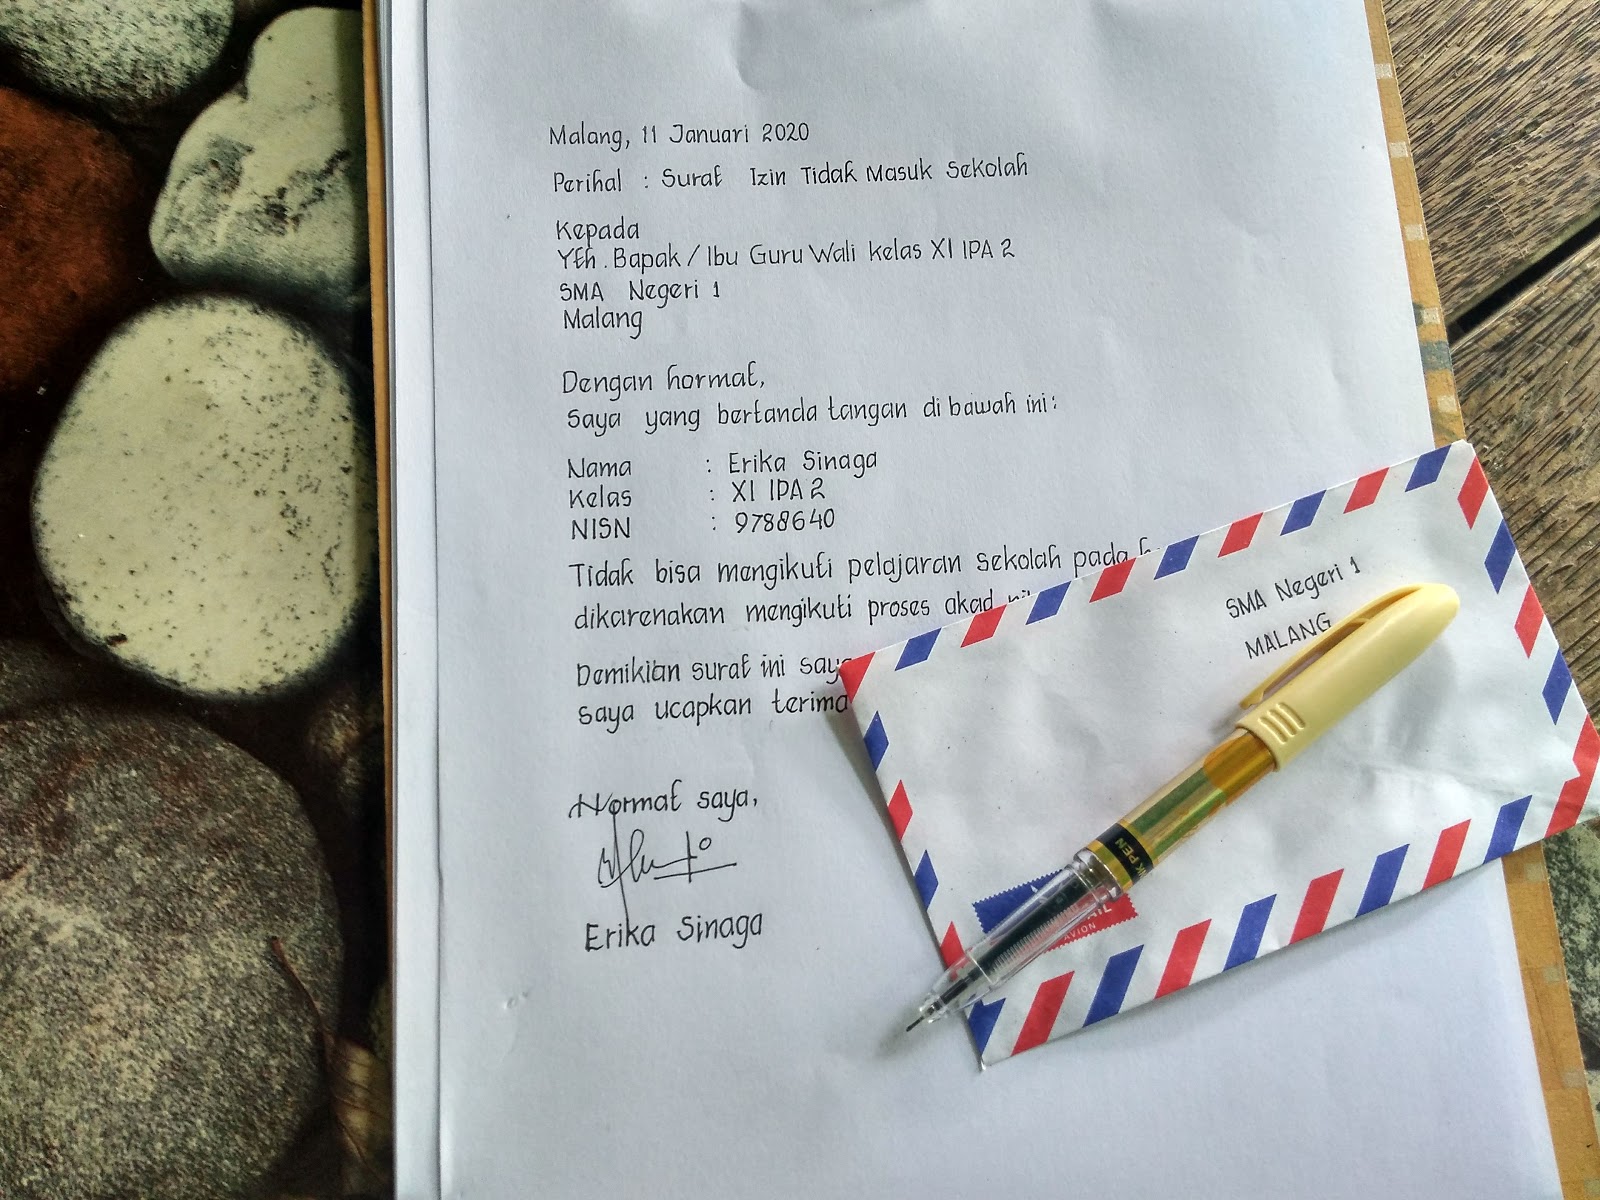 Malang, 11 Januari 2020
Perihal : Surat Izin Tidak Masuk Sekolah
Kepada
Yth. Bapak / Ibu Guru Wali Kelas XI IPA 2
SMA Negeri 1
Malang
Dengan hormat,
Saya yang bertanda tangan di bawah ini:
Nama : Erika Sinaga
Kelas : XI IPA 2
NISN : 9788640
Tidak bisa mengikuti pelajaran sekolah pada
dikarenakan mengikuti proses akad
Demikian surat ini saya
saya ucapkan terima
Hormat saya,
Erika Sinaga
SMA Negeri 1
MALANG
PEN
AVION